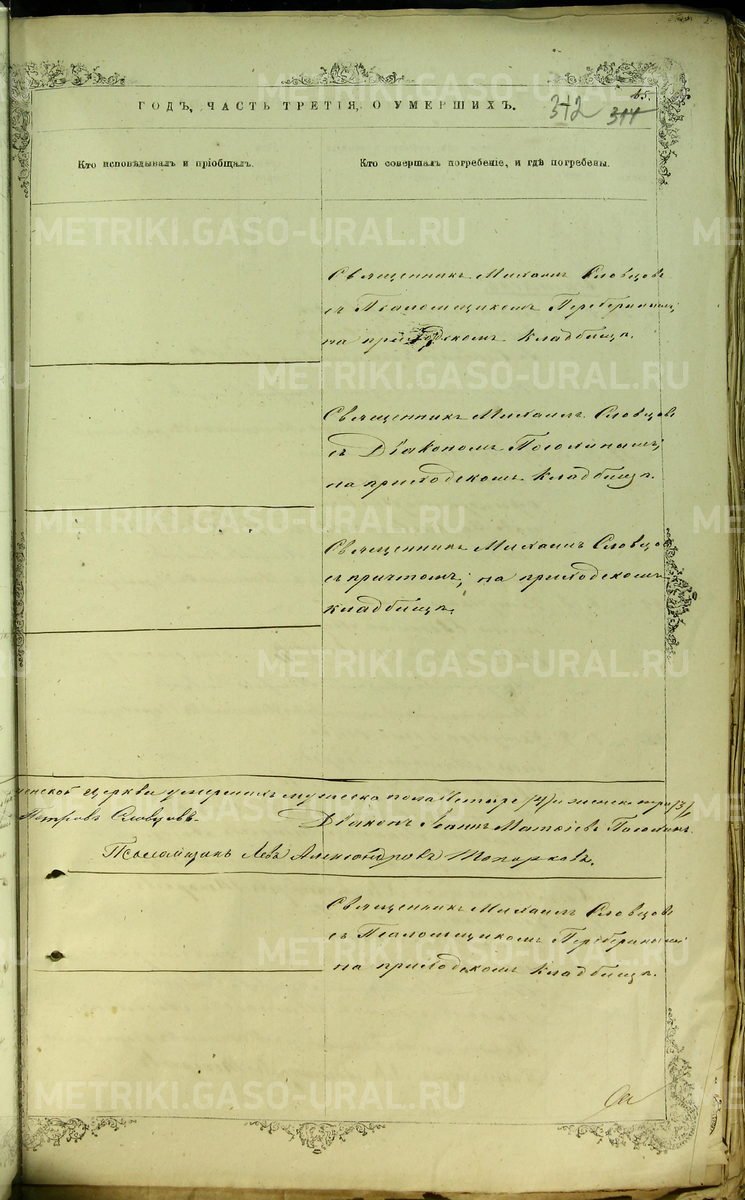 ГОДЪ, ЧАСТЬ ТРЕТІЯ, О УМЕРШИХЪ.
312 311
45.
Кто исповѣдывалъ и пріобщалъ.
Кто совершалъ погребеніе, и гдѣ погребены.
Священникъ Михаилъ Словцовъ
съ Псаломщикомъ
на приходскомъ кладбищѣ.
Священникъ Михаилъ Словцовъ
съ Діакономъ Поголинымъ;
на приходскомъ кладбищѣ.
Священникъ Михаилъ Словцовъ
съ причтомъ; на приходскомъ
кладбищѣ.
церкви умершихъ мужеска пола четыре (4) и женска три (3)
Петровъ Словцовъ. Діаконъ Іоаннъ Поголинъ.
Псаломщикъ Левъ Александровъ Топорковъ.
Священникъ Михаилъ Словцовъ
съ Псаломщикомъ
на приходскомъ кладбищѣ.
METRIKI.GASO-URAL.RU